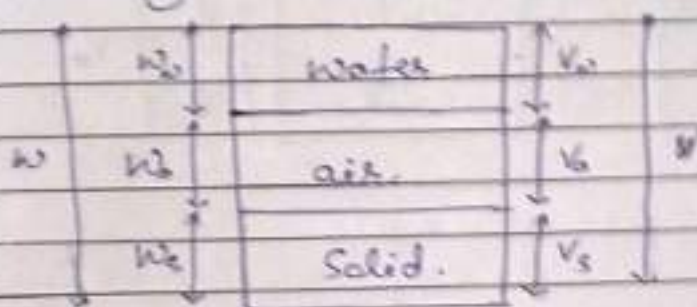 Ww water Vw
w Wa air. Va
Ws Solid. Vs